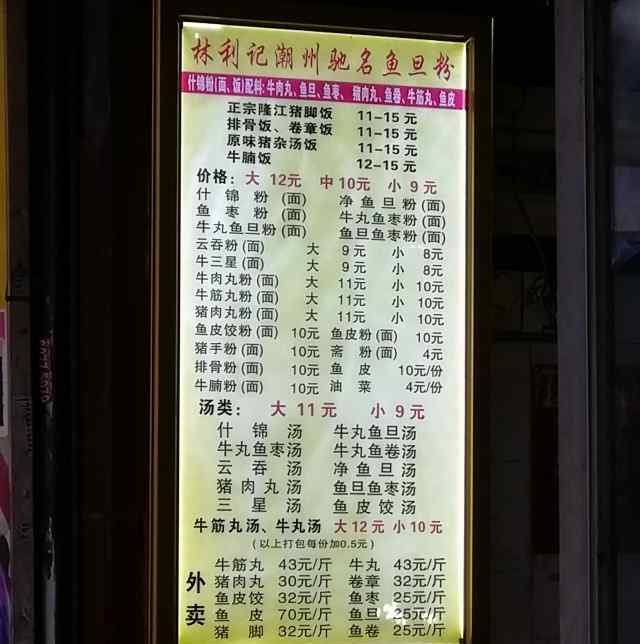 林利记潮州驰名鱼旦粉
什锦粉(面、饭)配料:牛肉丸、鱼旦、鱼枣、猪肉丸、鱼卷、牛筋丸、鱼皮
正宗隆江猪脚饭 11-15元
排骨饭、卷章饭 11-15元
原味猪杂汤饭 11-15元
牛腩饭 12-15元
价格: 大 12元 中10元 小 9元
什锦粉(面) 净鱼旦粉(面)
鱼枣粉(面) 牛丸鱼枣粉(面)
牛丸鱼旦粉(面) 鱼旦鱼枣粉(面)
云吞粉(面) 大 9元 小 8元
牛三星(面) 大 9元 小 8元
牛肉丸粉(面) 大 11元 小 10元
牛筋丸粉(面) 大 11元 小 10元
猪肉丸粉(面) 大 11元 小 10元
鱼皮饺粉(面) 10元 鱼皮粉(面) 10元
猪手粉(面) 10元 斋粉(面) 4元
排骨粉(面) 10元 鱼皮 10元/份
牛腩粉(面) 10元 油菜 4元/份
汤类: 大 11元 小 9元
什锦汤 牛丸鱼旦汤
牛丸鱼枣汤 牛丸鱼卷汤
云吞汤 净鱼旦汤
猪肉丸汤 鱼旦鱼枣汤
三星汤 鱼皮饺汤
牛筋丸汤、牛丸汤 大12元 小10元
(以上打包每份加0.5元)
外卖
牛筋丸 43元/斤 牛丸 43元/斤
猪肉丸 30元/斤 卷章 32元/斤
鱼皮饺 32元/斤 鱼枣 25元/斤
鱼皮 70元/斤 鱼旦 25元/斤
猪脚 32元/斤 鱼卷 25元/斤